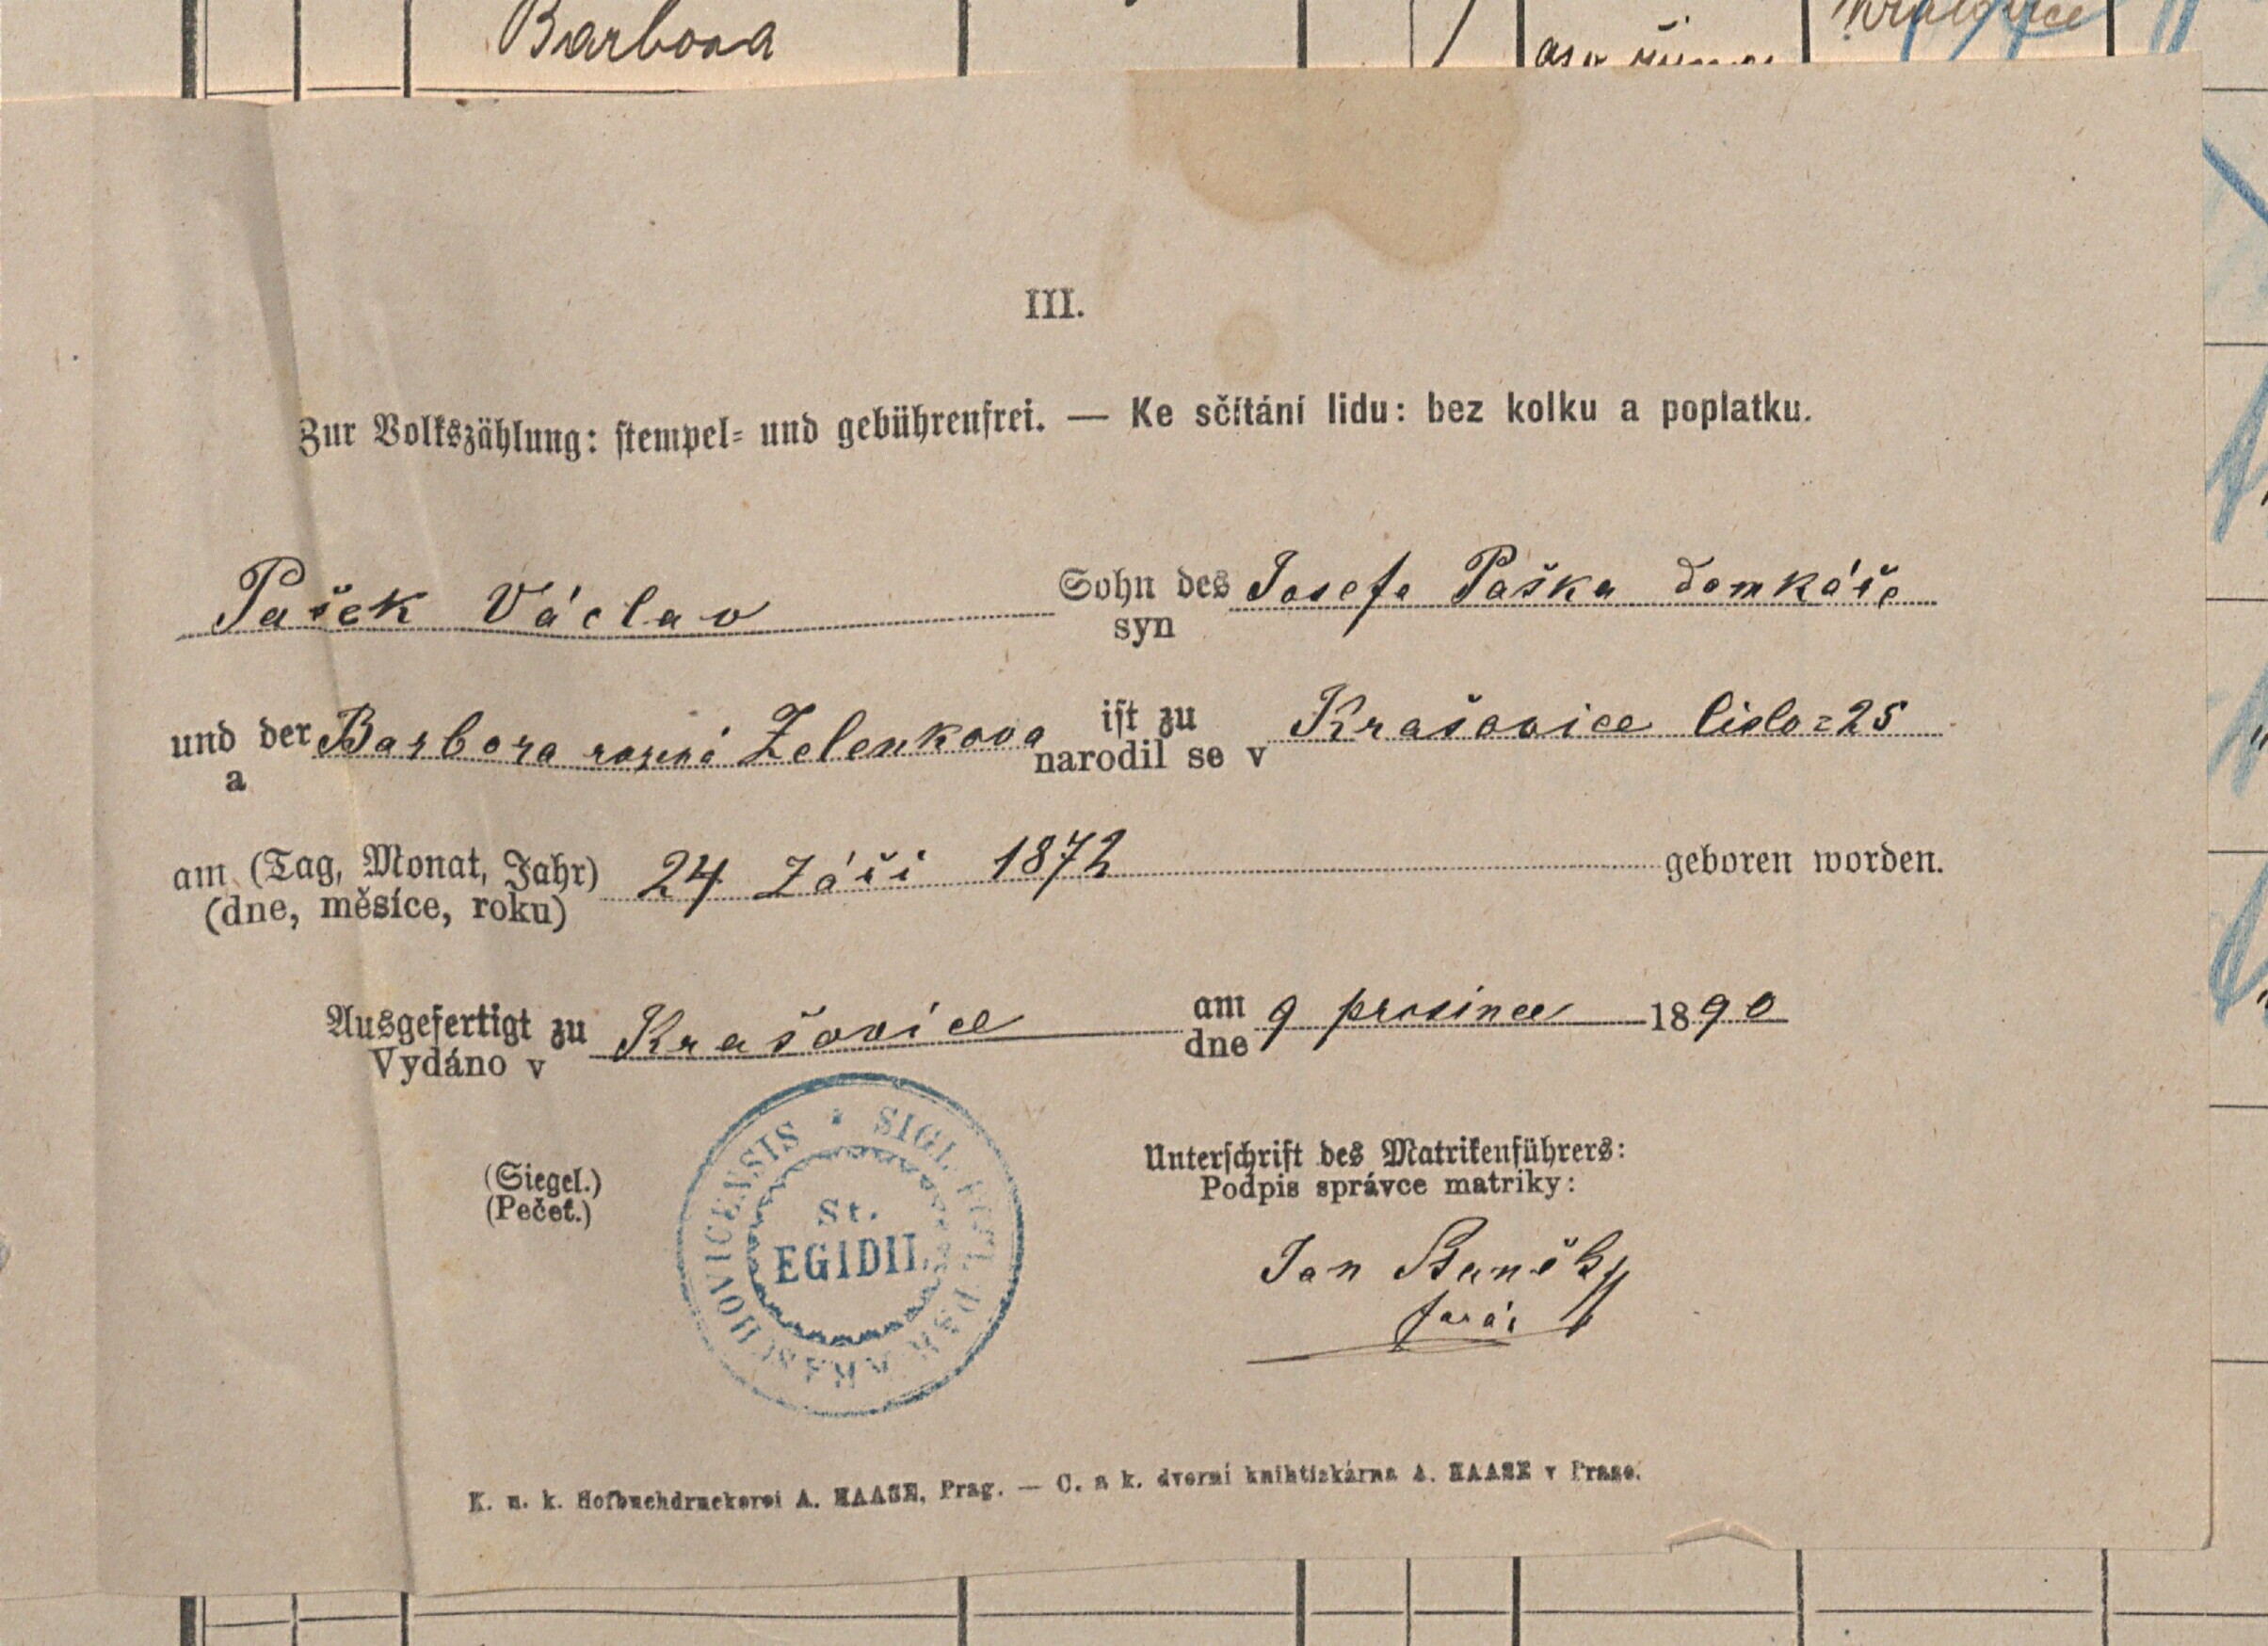 Barbora
III.
Zur Volkszählung: stempel- und gebührenfrei. — Ke sčítání lidu: bez kolku a poplatku.
Pašek Václav Sohn des Josefa Paška domkáře
syn
und der Barbora rozená Zelenkova ist zu Krašovice číslo=25
a narodil se v
am (Tag, Monat, Jahr) 24 Záři 1872 geboren worden.
(dne, měsíce, roku)
Ausgefertigt zu Krašovice am 9 prosince 1890
Vydáno v dne
(Siegel.)
(Pečeť.)
SIGL. PAR KRASCHOVICENSIS
St.
EGIDII.
Unterschrift des Matrikenführers:
Podpis správce matriky:
Jan
farář
K. u. k. Hofbuchdruckerei A. HAASE, Prag. — C. a k. dvorní knihtiskárna A. HAASE v Praze.